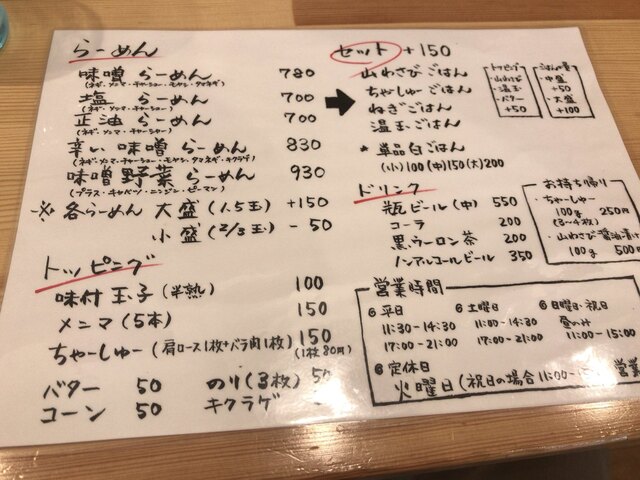 らーめん
味噌らーめん 780
(ネギ・メンマ・チャーシュー・モヤシ・タマネギ)
塩らーめん 700
(ネギ・メンマ・チャーシュー)
正油らーめん 700
(ネギ・メンマ・チャーシュー)
辛い味噌らーめん 830
(ネギ・メンマ・チャーシュー・モヤシ・タマネギ・キクラゲ)
味噌野菜らーめん 930
(プラス・キャベツ・ニンジン・ピーマン)
※各らーめん 大盛(1.5玉) +150
小盛(2/3玉) -50
トッピング
味付玉子(半熟) 100
メンマ(5本) 150
ちゃーしゅー(肩ロース1枚+バラ肉1枚) 150
(1枚80円)
バター 50 のり(3枚) 50
コーン 50 キクラゲ
セット +150
山わさびごはん
ちゃーしゅーごはん
ねぎごはん
温玉ごはん
★単品白ごはん
(小)100(中)150(大)200
トッピング
・山わさび
・温玉
・バター
+50
ごはんの量
・中盛
+50
・大盛
+100
ドリンク
瓶ビール(中) 550
コーラ 200
黒ウーロン茶 200
ノンアルコールビール 350
お持ち帰り
・ちゃーしゅー
100g 250円
(3~4枚)
・山わさび醤油漬け
100g 500円
営業時間
平日
11:30-14:30
17:00-21:00
土曜日
11:00-14:30
17:00-21:00
日曜日・祝日
昼のみ
11:00-15:00
定休日
火曜日(祝日の場合11:00-
営業